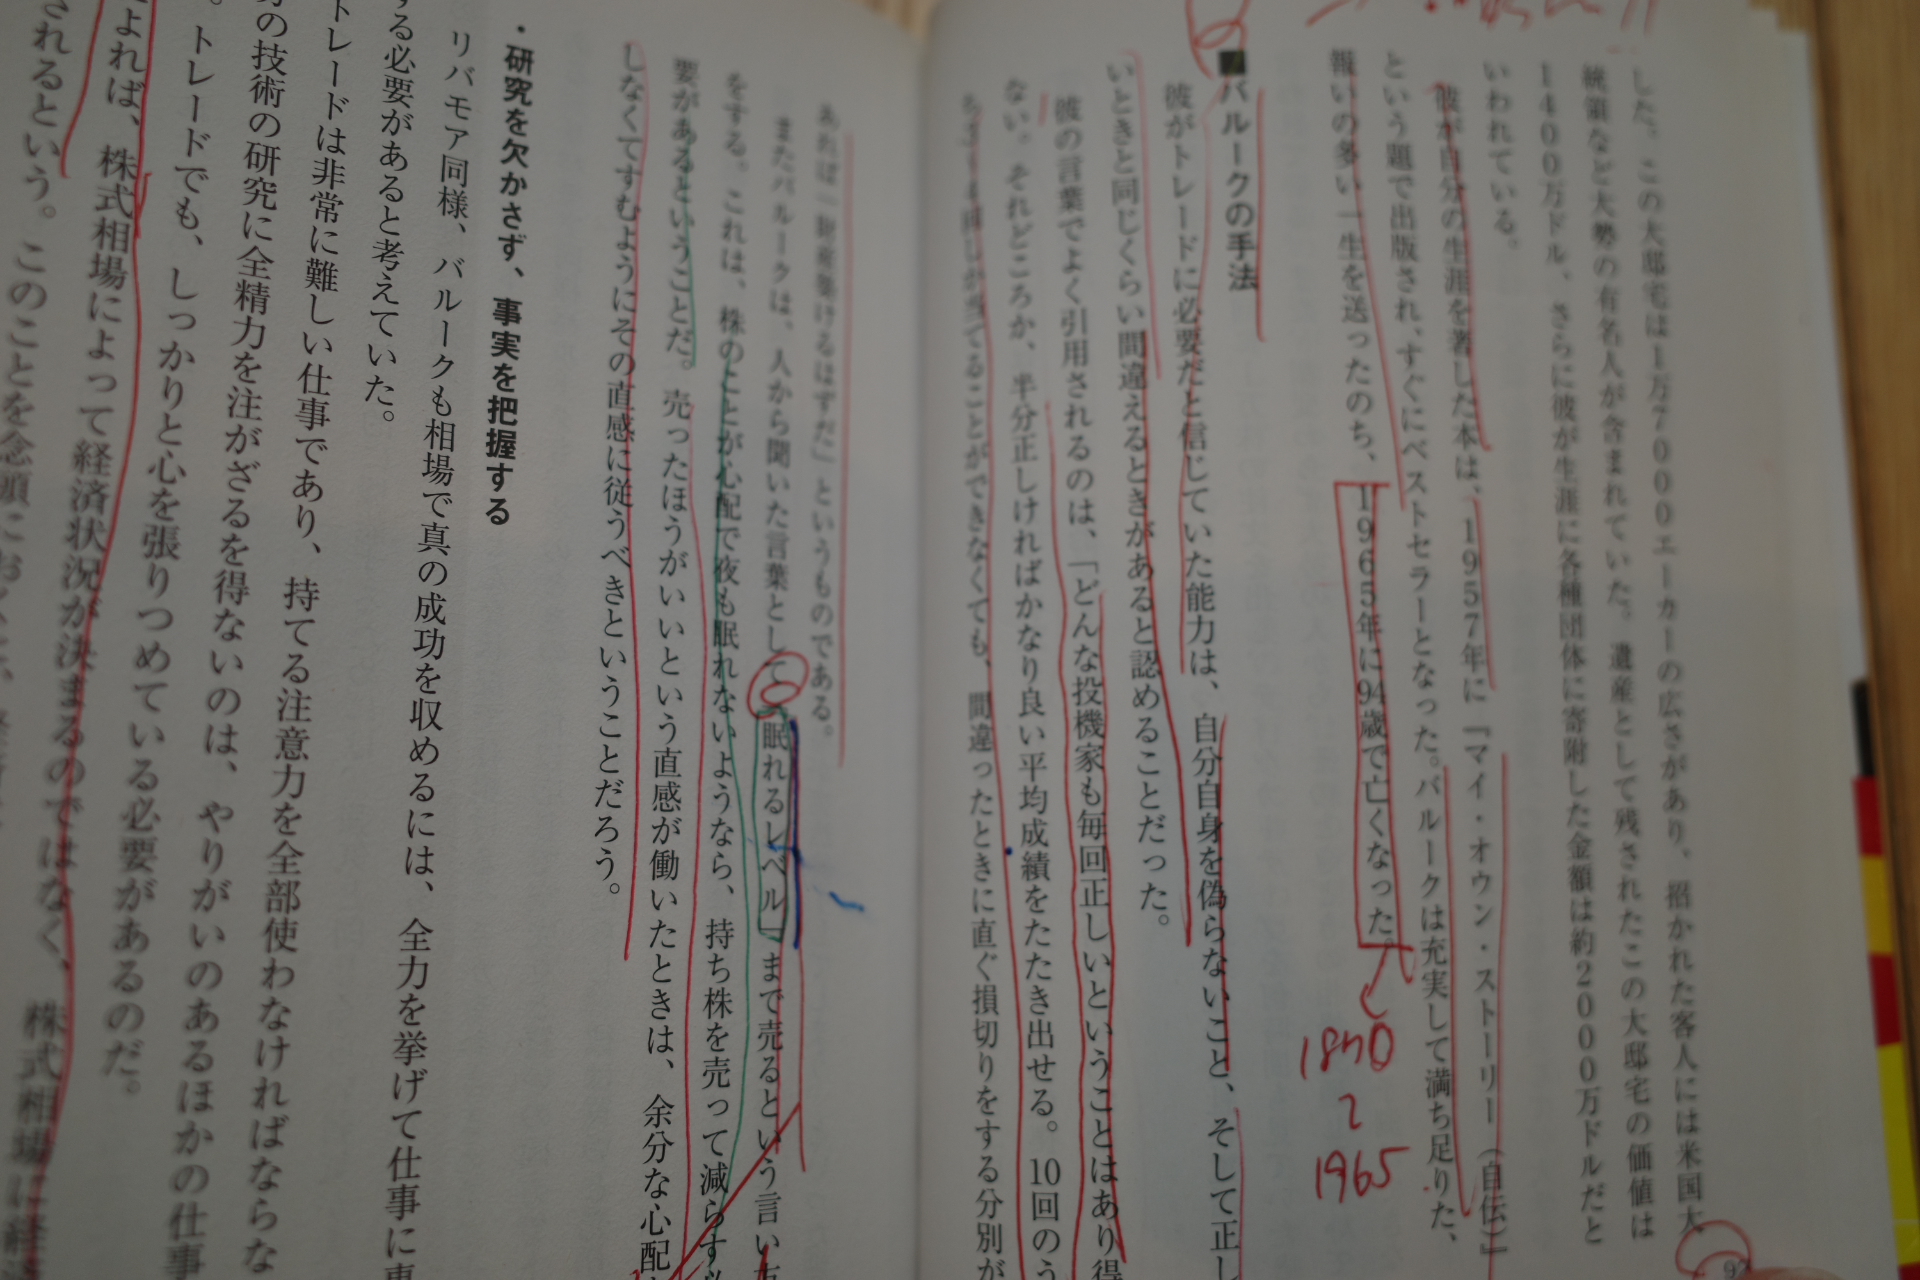 した。この大邸宅は1万7000エーカーの広さがあり、招かれた客人には米国大
統領など大勢の有名人が含まれていた。遺産として残されたこの大邸宅の価値は
1400万ドル、さらに彼が生涯に各種団体に寄附した金額は約2000万ドルだと
いわれている。
彼が自分の生涯を著した本は、1957年に『マイ・オウン・ストーリー（自伝）』
という題で出版され、すぐにベストセラーとなった。バルークは充実して満ち足りた、
報いの多い一生を送ったのち、1965年に94歳で亡くなった。
1870
〜
1965
■バルークの手法
彼がトレードに必要だと信じていた能力は、自分自身を偽らないこと、そして正し
いときと同じくらい間違えるときがあると認めることだった。
彼の言葉でよく引用されるのは、「どんな投機家も毎回正しいということはあり得
ない。それどころか、半分正しければかなり良い平均成績をたたき出せる。10回のう
ち3〜4回しか当てることができなくても、間違ったときに直ぐ損切りをする分別が
あれば一財産築けるはずだ」というものである。
またバルークは、人から聞いた言葉として「眠れるレベル」まで売るという言い方
をする。これは、株のことが心配で夜も眠れないようなら、持ち株を売って減らす必
要があるということだ。売ったほうがいいという直感が働いたときは、余分な心配
しなくてすむようにその直感に従うべきということだろう。
・研究を欠かさず、事実を把握する
リバモア同様、バルークも相場で真の成功を収めるには、全力を挙げて仕事に専
する必要があると考えていた。
トレードは非常に難しい仕事であり、持てる注意力を全部使わなければならな
分の技術の研究に全精力を注がざるを得ないのは、やりがいのあるほかの仕事
。トレードでも、しっかりと心を張りつめている必要があるのだ。
よれば、株式相場によって経済状況が決まるのではなく、株式相場に経済
されるという。このことを念頭におくと、